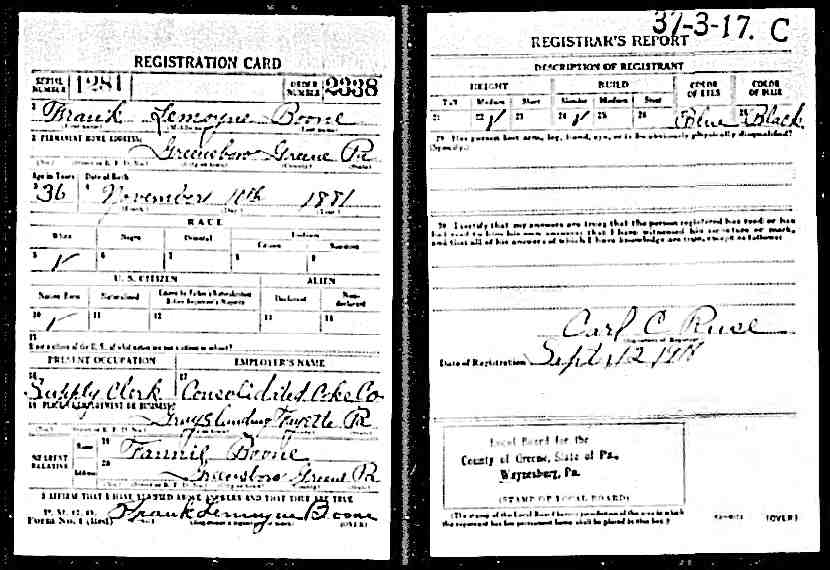 REGISTRATION CARD
SERIAL NUMBER 1281 ORDER NUMBER 2338
1 Frank Lemoyne Boone
2 PERMANENT HOME ADDRESS:
Greensboro Greene Pa
Age in Years Date of Birth
3 36 4 November 10th 1881
(Month) (Day) (Year)
RACE
White Negro Oriental Indian
Citizen
5 ✓ 6 7 8 9
U. S. CITIZEN ALIEN
Native Born Naturalized Declared Non-declared
10 ✓ 11 12 13 14
15
PRESENT OCCUPATION EMPLOYER'S NAME
16 Supply Clerk 17 Consolidated Coke Co
18 PLACE OF EMPLOYMENT OR BUSINESS:
Grays Landing Fayette Pa
NEAREST RELATIVE Name 19 Fannie Boone
Address 20 Greensboro Greene Pa
I AFFIRM THAT I HAVE VERIFIED ABOVE ANSWERS AND THAT THEY ARE TRUE
Form No. 1 (Red) Frank Lemoyne Boone (OVER)
37-3-17. C
REGISTRAR'S REPORT
DESCRIPTION OF REGISTRANT
HEIGHT BUILD COLOR OF EYES COLOR OF HAIR
Tall Medium Short Slender Medium Stout
21 22 ✓ 23 24 ✓ 25 26 Blue 28 Black
29 Has person lost arm, leg, hand, eye, or is he obviously physically disqualified?
(Specify.)
30 I certify that my answers are true; that the person registered has read or has
had read to him his own answers; that I have witnessed his signature or mark,
and that all of his answers of which I have knowledge are true, except as follows:
Carl C Ruse
Date of Registration Sept 12 1918
Local Board for the
County of Greene, State of Pa.,
Waynesburg, Pa.
(STAMP OF LOCAL BOARD)
(The stamp of the Local Board having jurisdiction of the area in which
the registrant has his permanent home shall be placed in this box.)
(OVER)